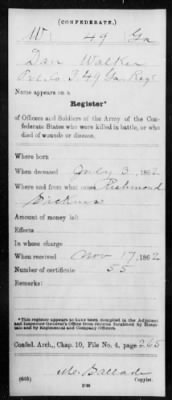 (CONFEDERATE.)
W 49 Ga
Dan Walker
Pvt. Co. F, 49 Ga. Regt.
Name appears on a
Register*
of Officers and Soldiers of the Army of the Con-
federate States who were killed in battle, or who
died of wounds or disease.
Where born
When deceased July 3, 1862
Where and from what cause Richmond
Sickness
Amount of money left
Effects
In whose charge
When received Nov 17, 1862
Number of certificate 55
Remarks:
*This register appears to have been compiled in the Adjutant
and Inspector General's Office from records furnished by Hospi-
tals and by Regimental and Company Officers.
Confed. Arch., Chap. 10, File No. 4, page 265
Mc. Ballad
(635) Copyist.